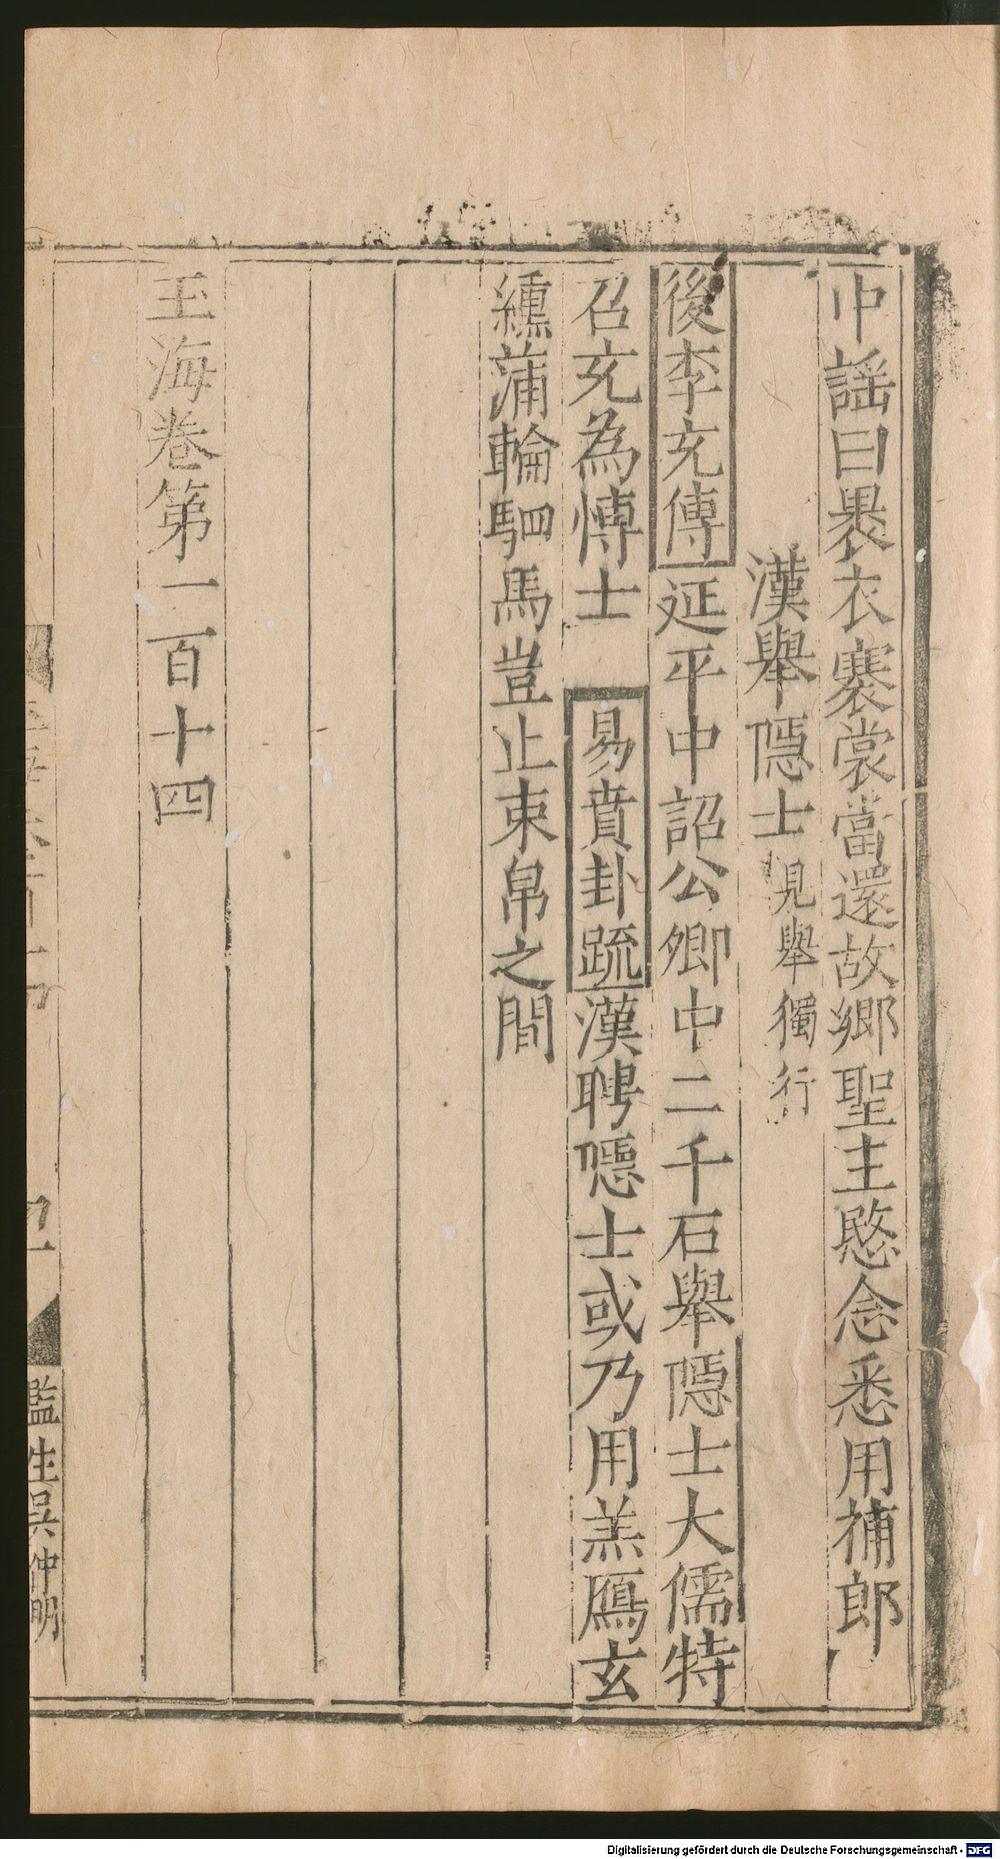 中謡曰褁衣褰裳當還故郷聖主愍念悉用補郎
漢舉隱士見舉獨行
後李充傳延平中詔公卿中二千石舉隱士大儒特
召充為愽士 易賁卦疏漢聘隱士或乃用羔鴈玄
纁蒲輪駟馬豈止束帛之間
玉海卷第一百十四
監生吳仲明
Digitalisierung gefördert durch die Deutsche Forschungsgemeinschaft - DFG